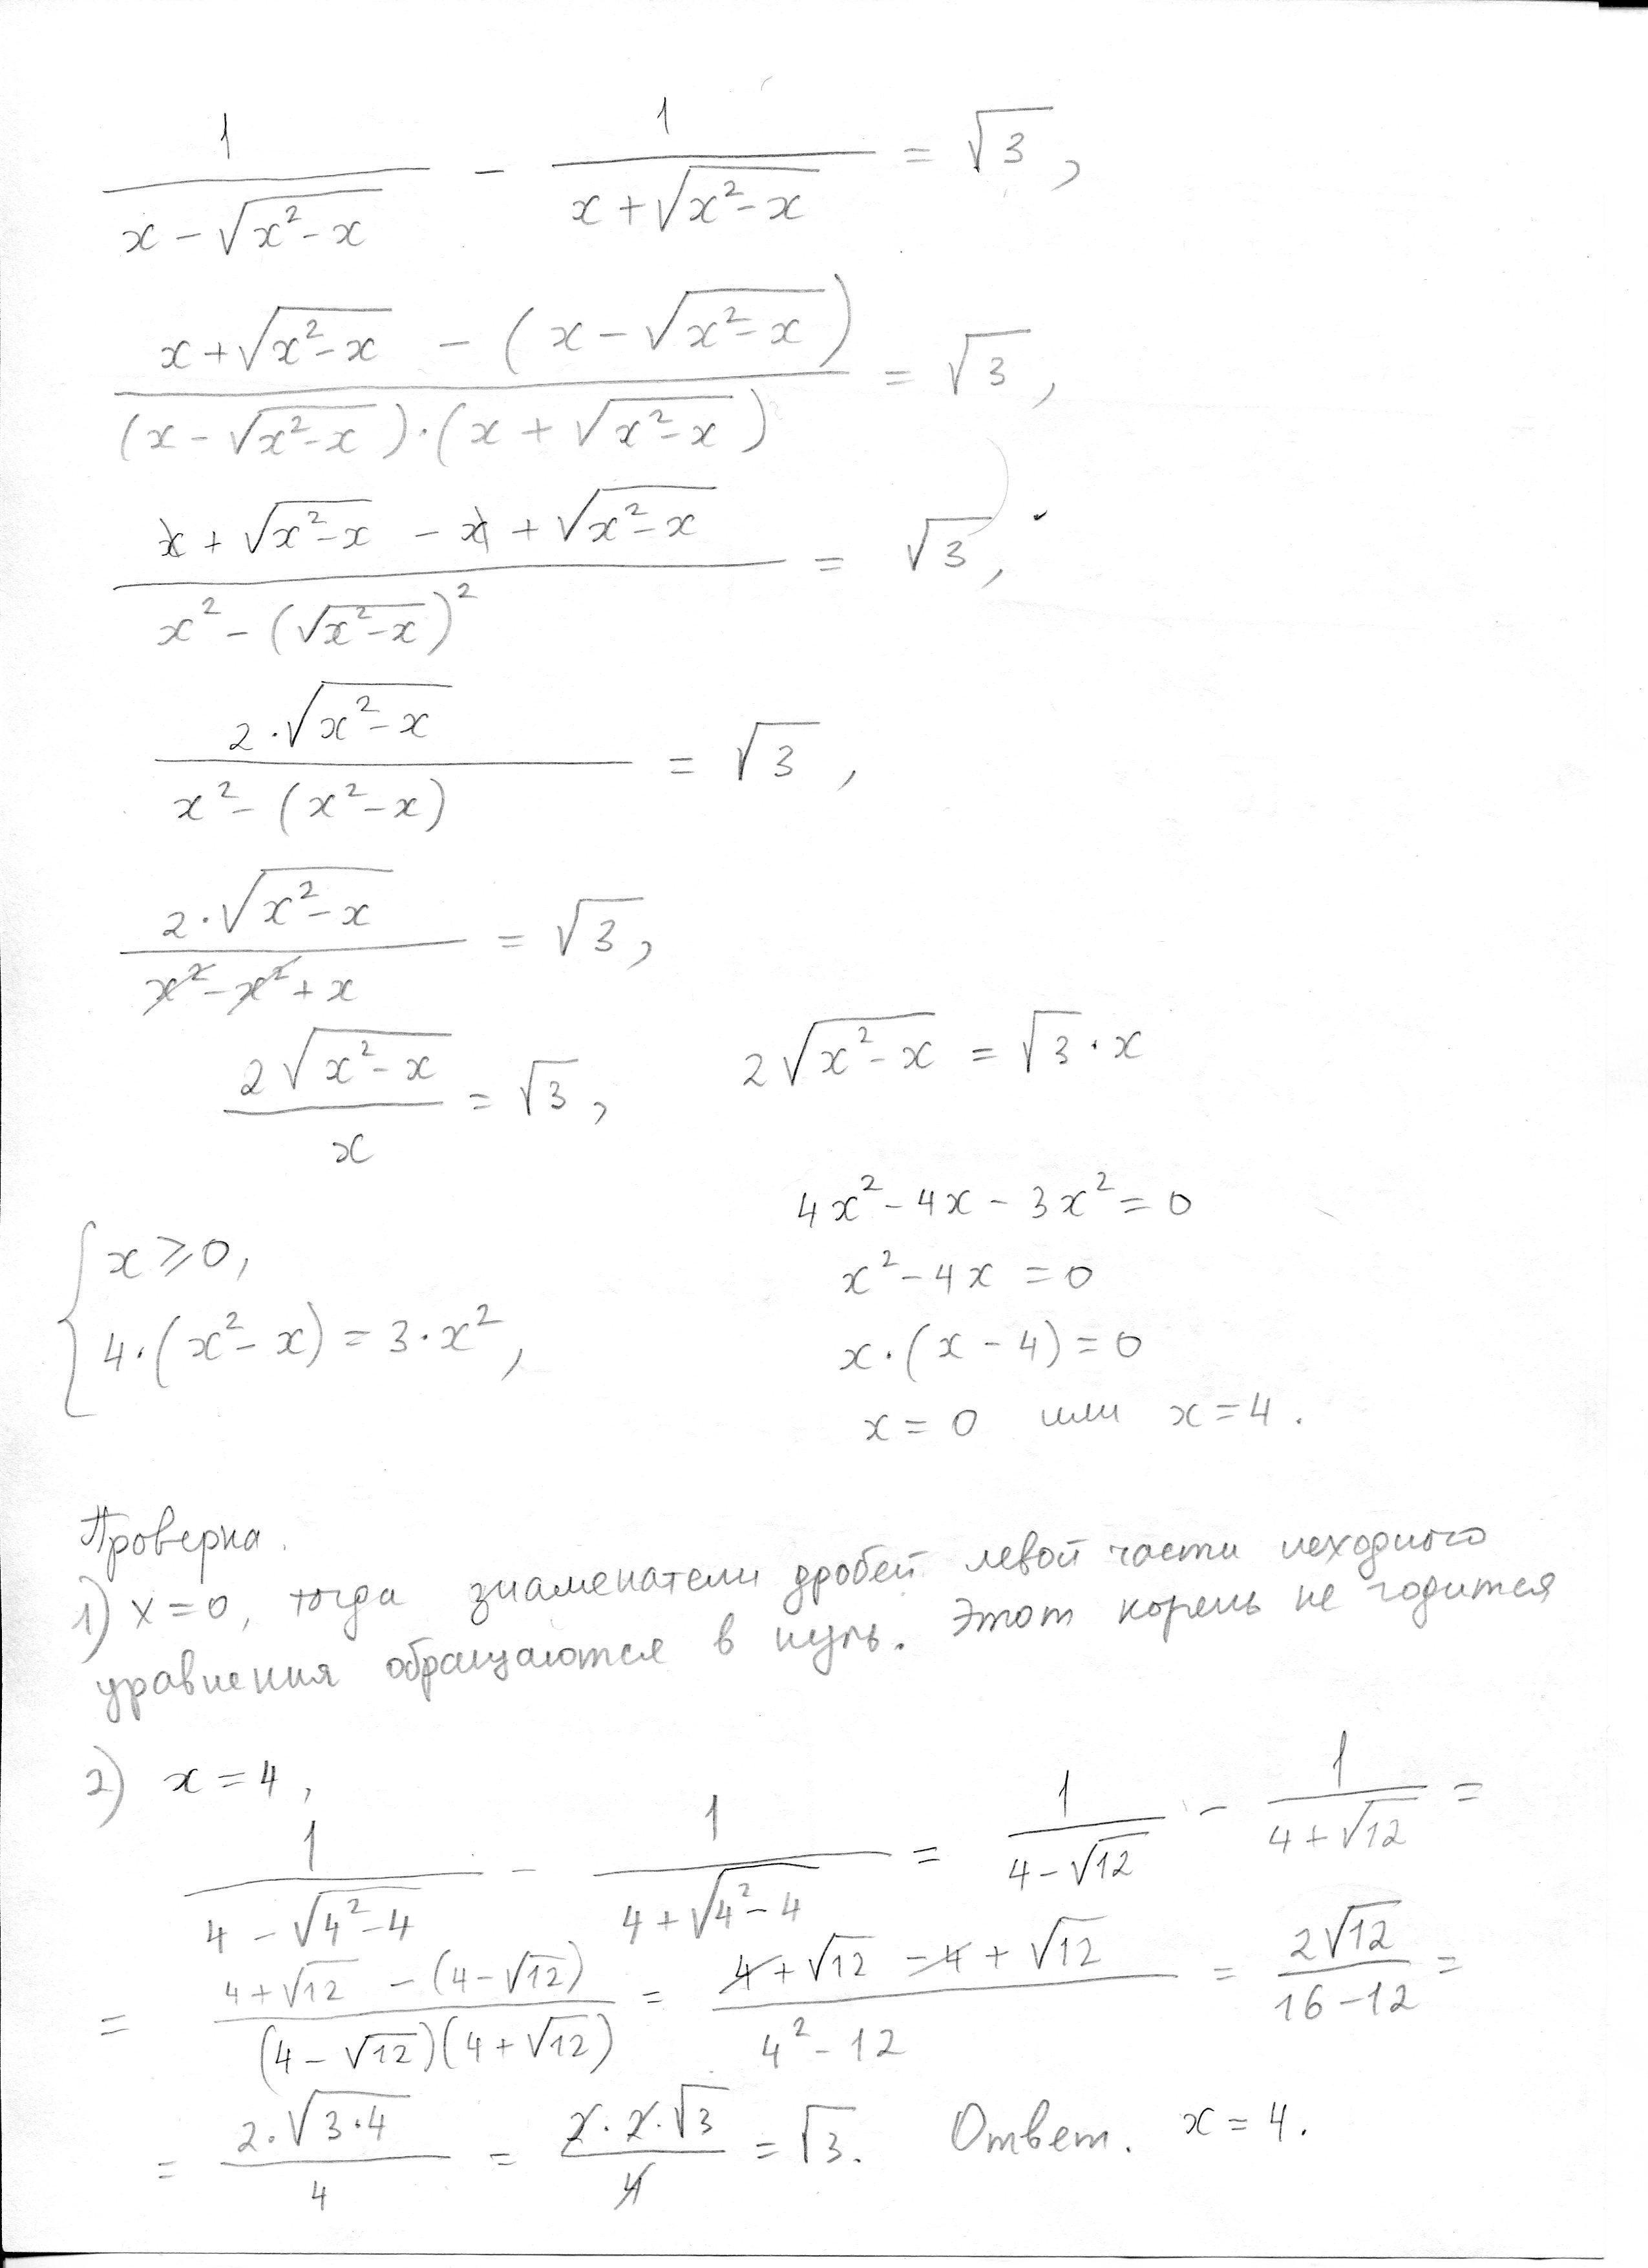 1/(x - √(x² - x)) - 1/(x + √(x² - x)) = √3,
(x + √(x² - x) - (x - √(x² - x)))/((x - √(x² - x))·(x + √(x² - x))) = √3,
(x + √(x² - x) - x + √(x² - x))/(x² - (√(x² - x))²) = √3,
2·√(x² - x)/(x² - (x² - x)) = √3,
2·√(x² - x)/(x² - x² + x) = √3,
2√(x² - x)/x = √3, 2√(x² - x) = √3·x
{ x ≥ 0,
4·(x² - x) = 3·x²,
4x² - 4x - 3x² = 0
x² - 4x = 0
x·(x - 4) = 0
x = 0 или x = 4.
Проверка.
1) x = 0, тогда знаменатели дробей левой части исходного
уравнения обращаются в нуль. Этот корень не годится
2) x = 4,
1/(4 - √(4² - 4)) - 1/(4 + √(4² - 4)) = 1/(4 - √12) - 1/(4 + √12) =
= (4 + √12 - (4 - √12))/((4 - √12)(4 + √12)) = (4 + √12 - 4 + √12)/(4² - 12) = 2√12/(16 - 12) =
= 2·√(3·4)/4 = 2·2·√3/4 = √3. Ответ. x = 4.